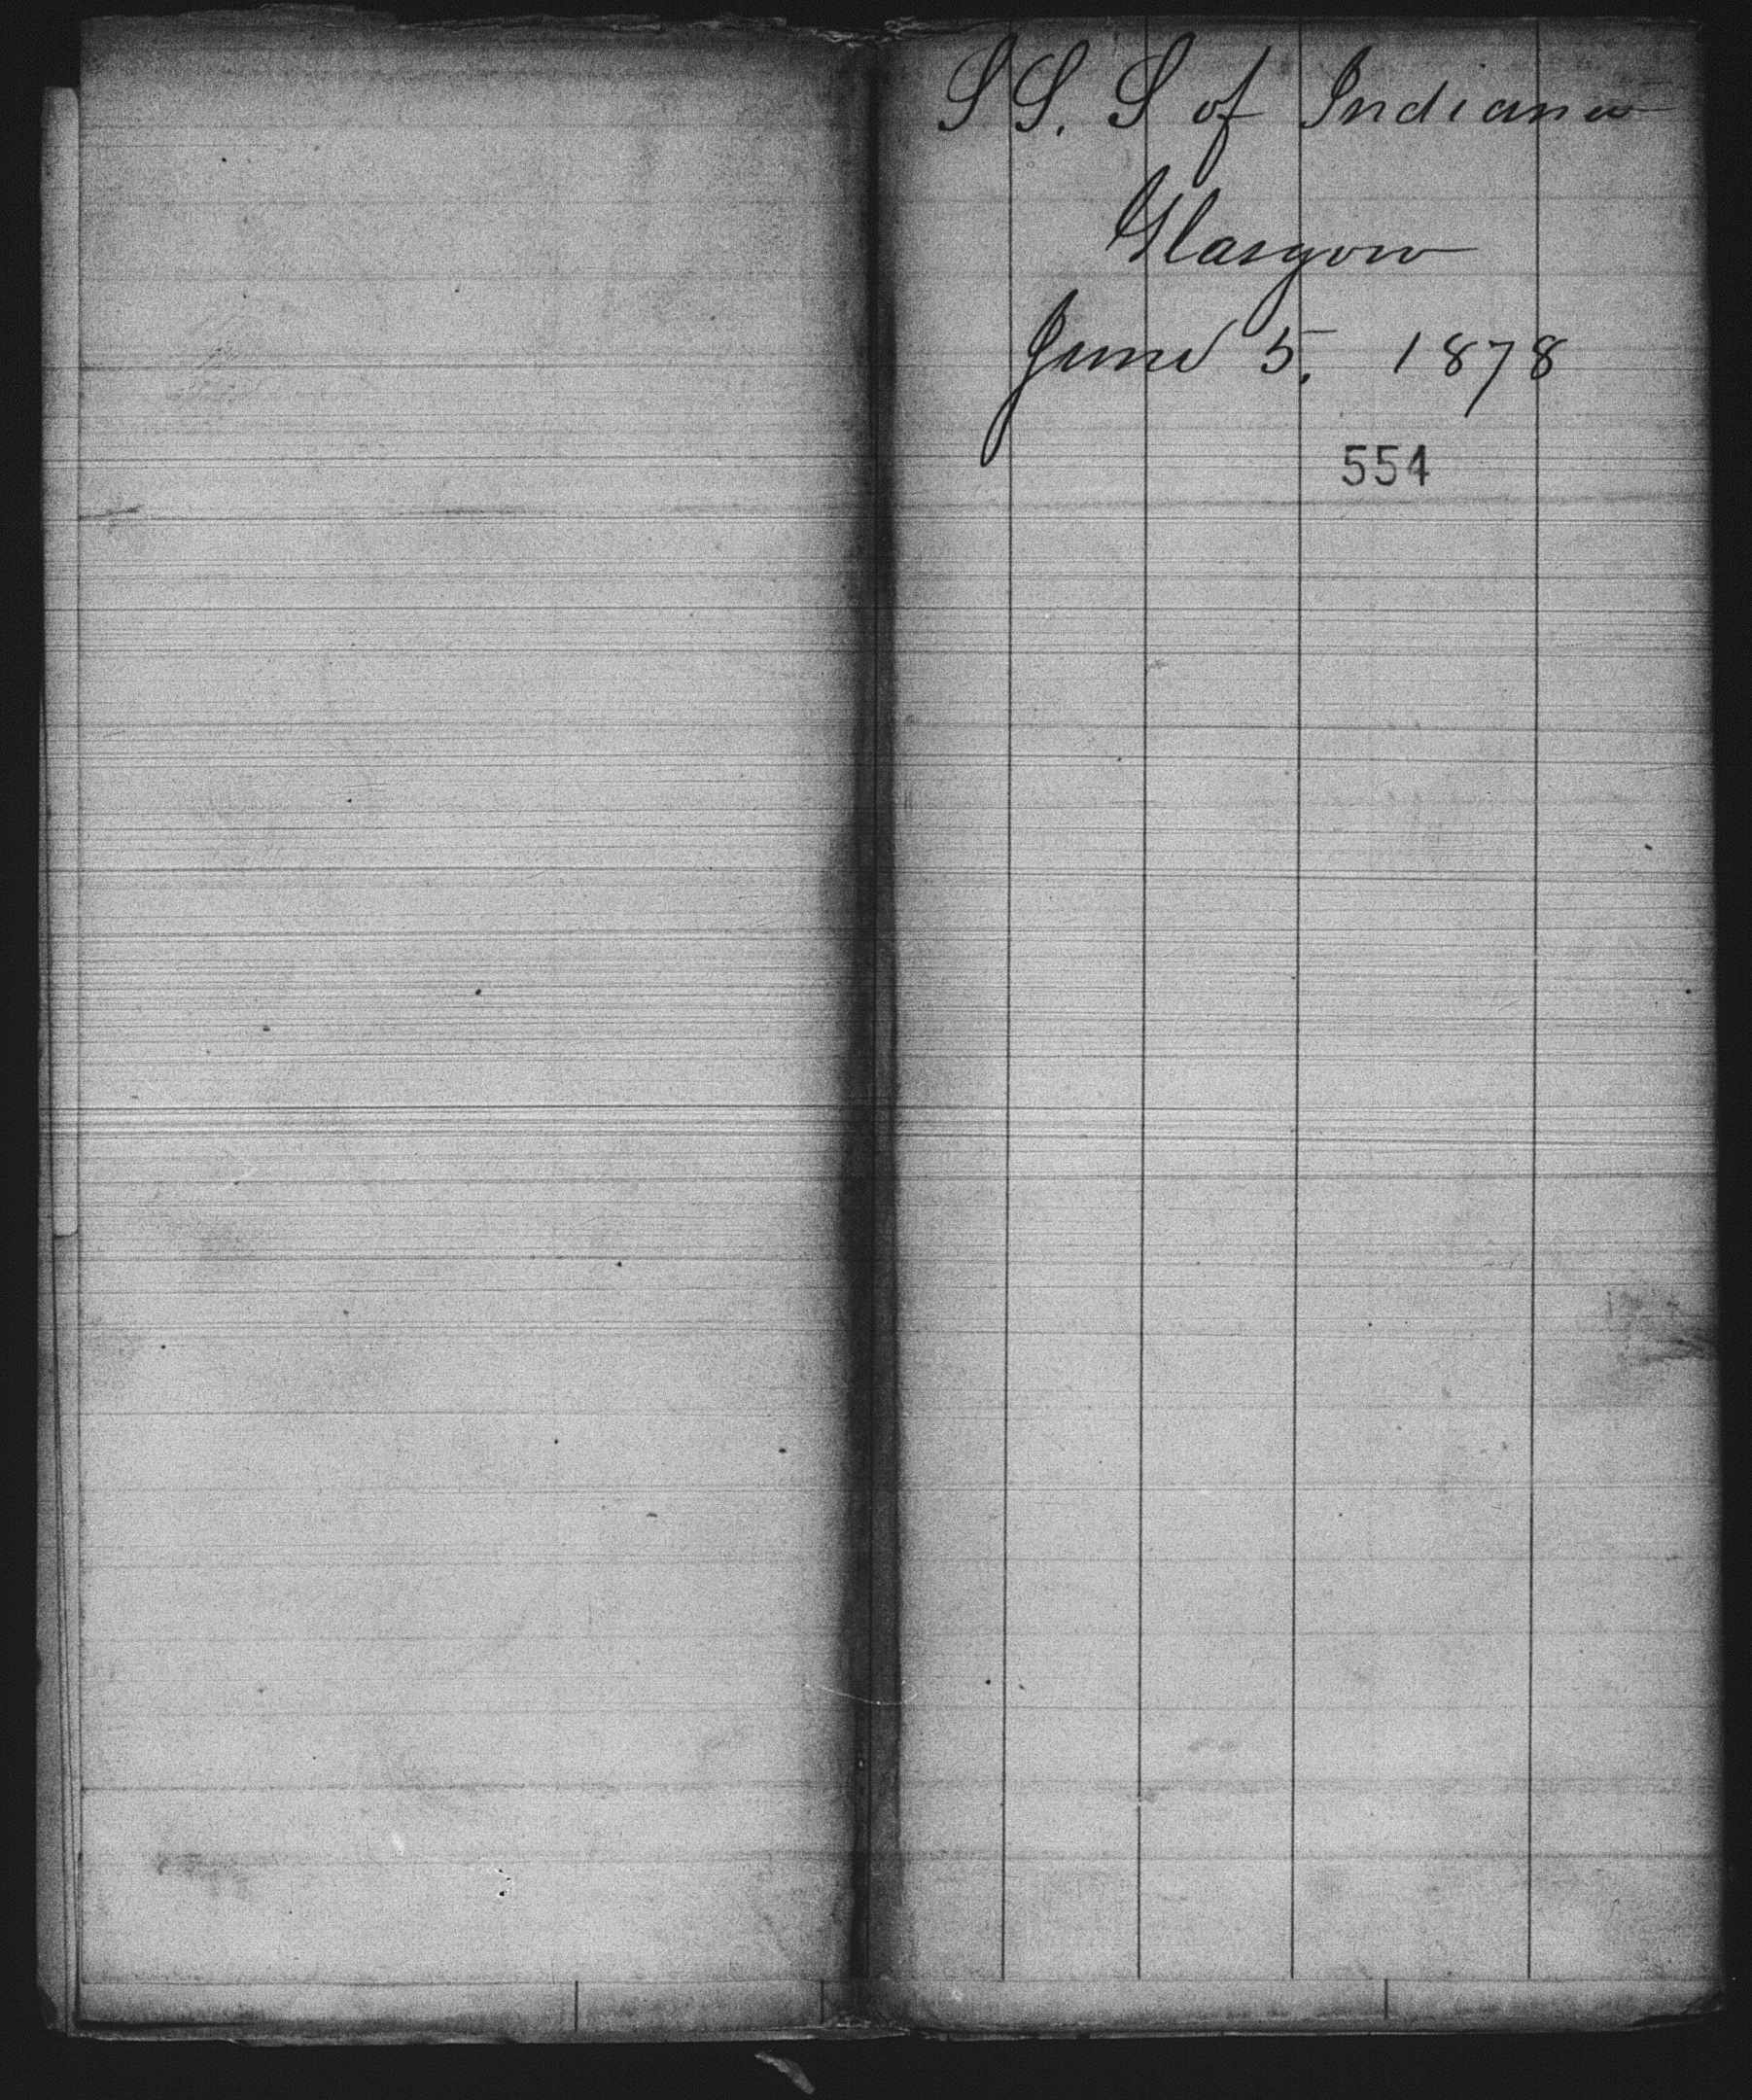 S S. S of Indiana
Glasgow
June 5. 1878
554